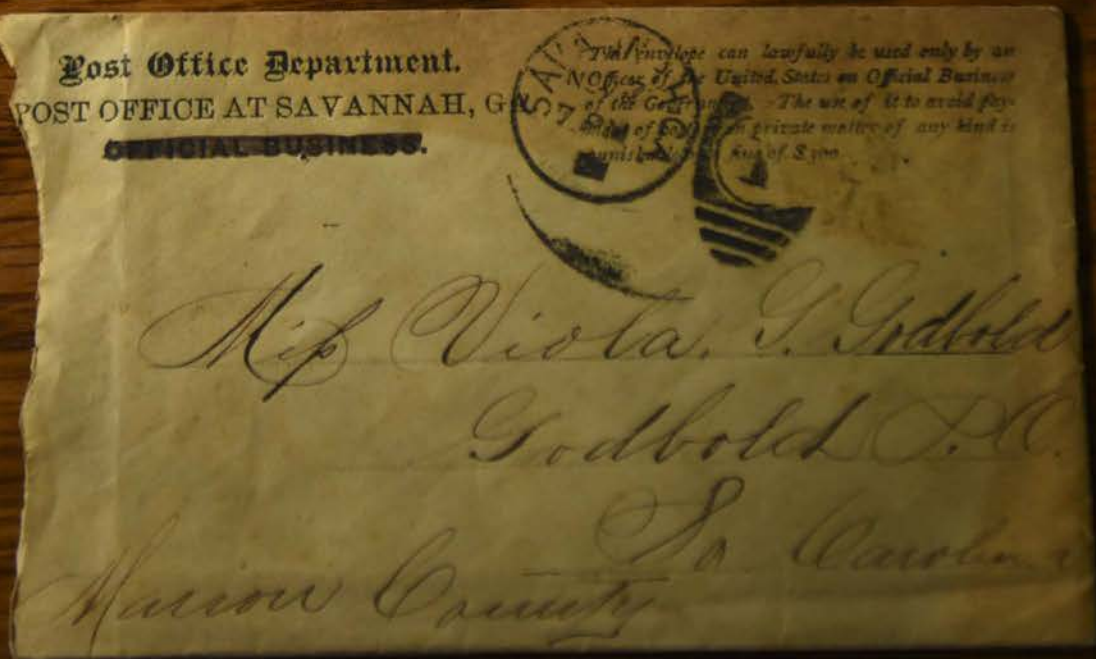 Post Office Department.
POST OFFICE AT SAVANNAH, GA
OFFICIAL BUSINESS.
This envelope can lawfully be used only by an
Officer of the United States on Official Business
of the Government. The use of it to avoid pay-
ment of on private matter of any kind is
punishable fine of $300
SAVANNAH
Miſs Viola. G. Godbold
Godbold P.O.
So Carolina
Marion County